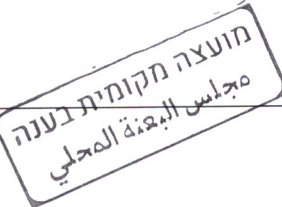 מועצה מקומית בענה
مجلس البعنة المحلي